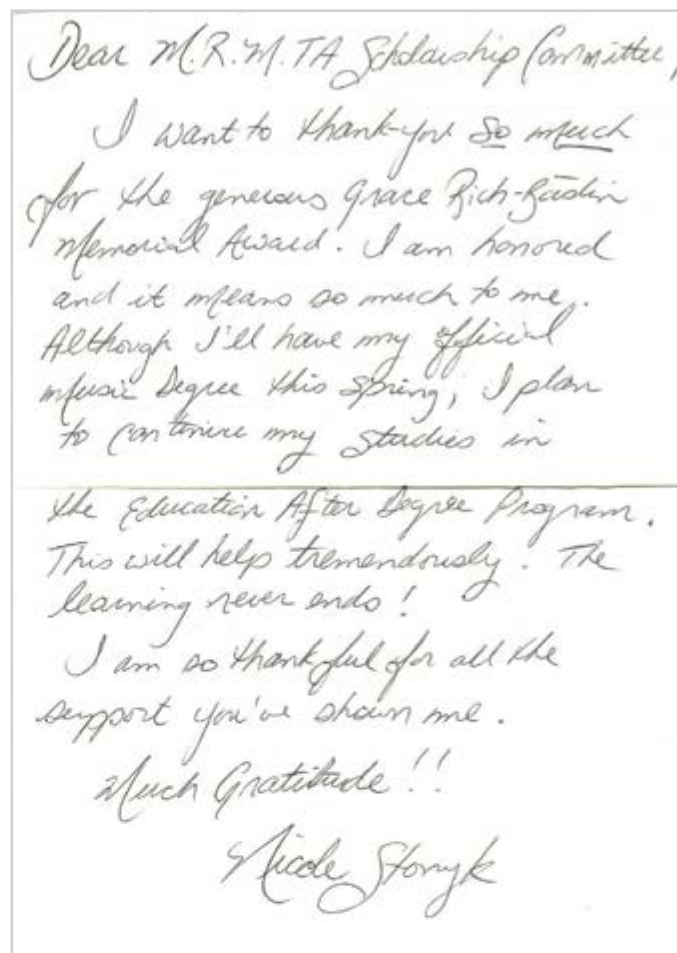 Dear M.R.M.TA Scholarship Committee,
I want to thank-you So much
for the generous Grace Rich-Bastin
Memorial Award. I am honored
and it means so much to me.
Although I'll have my official
music Degree this Spring, I plan
to continue my studies in
the Education After Degree Program.
This will help tremendously. The
learning never ends!
I am so thankful for all the
support you've shown me.
Much Gratitude!!
Nicole